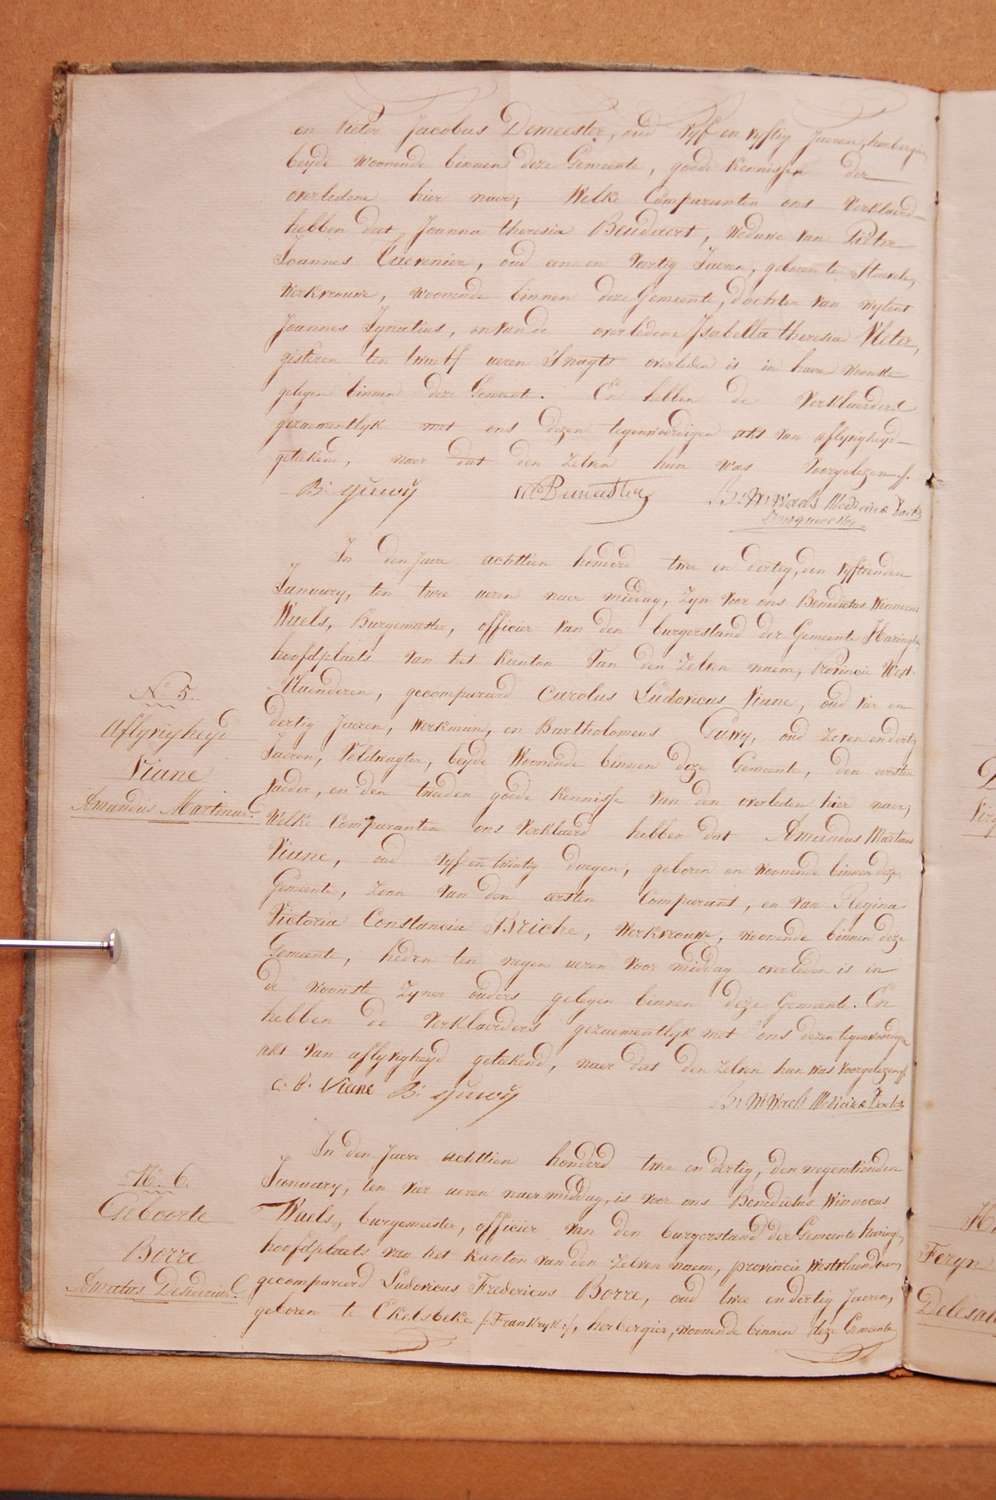 en Victor Jacobus Demeester, oud vyf en vyftig Jaeren, herbergier,
beyde Woonende binnen deze Gemeente, goede kennissen der
overledene hier naer; Welke Comparanten ons Verklaerd
hebben dat Joanna theresia Beudaert, Weduwe van Pieter
Joannes Cuvenier, oud een en Veertig Jaeren, geboren te
Werkvrouwe, woonende binnen deze Gemeente, dochter van wylent
Joannes Ignatius, en van de overledene Isabella theresia
gisteren ten twaelf ueren 's nagts overleden is in haere woonste
gelegen binnen deze Gemeente. En hebben de Verklaerders
gezaementlyk met ons dezen tegenwoordigen akt van aflyvigheyd
geteekend, naer dat den Zelven hun was Voorgelezen.
B: guwÿ VDemeester B: W: Waels Medicinæ Doctr
Burgmeester
In den Jaere achttien honderd twee en dertig, den vyftienden
January, ten twee ueren naer middag, zyn Voor ons Benedictus Winnocus
Waels, Burgemeester, officier Van den burgerstand der Gemeente Haringhe
hoofdplaets van het Kanton Van den Zelven naem, Provincie West-
Vlaenderen, gecompareerd Carolus Ludovicus Viane, oud vier en
dertig Jaeren, Werkman, en Bartholomeus Guwy, oud zeven en dertig
Jaeren, Veldwagter, beyde Woonende binnen deze Gemeente, den eersten
Vader, en den tweeden goede kennisse Van den overleden hier naer;
Welke Comparanten ons Verklaerd hebben dat Amandus Martinus
Viane, oud vyf en twintig dagen, geboren en woonende binnen deze
Gemeente, Zoon Van den eersten Comparant, en van Regina
Victoria Constancia Briche, Werkvrouwe, woonende binnen deze
Gemeente, heden ten negen ueren voor middag overleden is in
de woonste Zyner ouders gelegen binnen deze Gemeente. En
hebben de Verklaerders gezaementlyk met ons dezen tegenwoordigen
akt van aflyvigheyd geteekend, naer dat den Zelven hun was Voorgelezen
C. L. Viane B: guwÿ B: W: Waels Medicinæ Doctr
N.º 5.
Aflyvigheyd
Viane
Amandus Martinus.
In den Jaere achttien honderd twee en dertig, den negentienden
January, ten vier ueren naer middag, is voor ons Benedictus Winnocus
Waels, burgemeester, officier van den burgerstand der Gemeente Haringhe,
hoofdplaets van het Kanton van den Zelven naem, provincie Westvlaenderen,
gecompareerd Ludovicus Fredericus Borre, oud twee en dertig Jaeren,
geboren te Ekelsbeke /:Frankryk:/, herbergier, woonende binnen deze Gemeente
N.º 6.
Geboorte
Borre
Feryn
Delesal